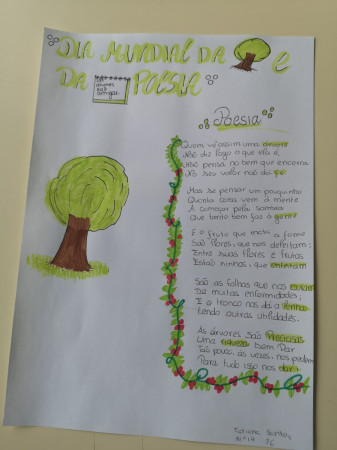 DIA MUNDIAL DA e
DA POESIA
as
árvores
são
amigas
Poesia
Quem vê assim uma árvore
Não diz logo o que vê é,
Não pensa no bem que encerra
No seu valor não dá fé
Mas se pensar um pouquinho
Quanta coisa vem à mente
A começar pela sombra
Que tanto bem faz à gente
E o fruto que mata a fome
São flores, que nos deleitam;
Entre suas flores e frutos
Estão ninhos, que
São as folhas que nos curam
De muitas enfermidades;
E o tronco nos dá a lenha
tendo outras utilidades.
As árvores são Preciosas
Uma riqueza sem Par
Tão pouco, às vezes, nos pedem
Para tudo isso nos dar!
Tatiana Santos
Nº19 7C